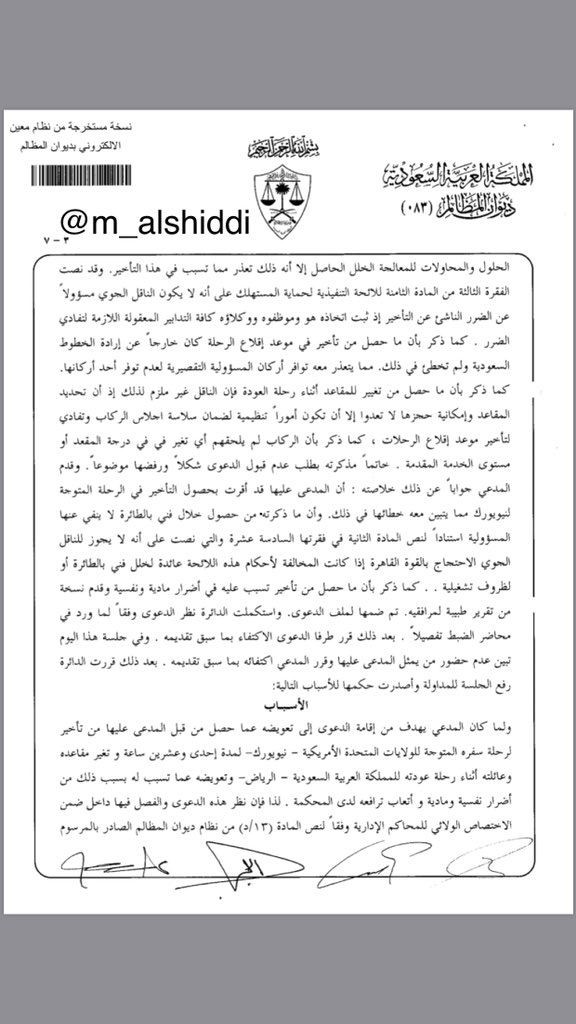 نسخة مستخرجة من نظام معين
الالكتروني بديوان المظالم
بسم الله الرحمن الرحيم
المملكة العربية السعودية
ديوان المظالم (٠٨٣)
@m_alshiddi
٣ - ٧
الحلول والمحاولات للمعالحة الخلل الحاصل إلا أنه ذلك تعذر مما تسبب في هذا التأخير. وقد نصت
الفقرة الثالثة من المادة الثامنة للائحة التنفيذية لحماية المستهلك على أنه لا يكون الناقل الجوي مسؤولاً
عن الضرر الناشئ عن التأخير إذ ثبت اتخاذه هو وموظفوه ووكلاؤه كافة التدابير المعقولة اللازمة لتفادي
الضرر . كما ذكر بأن ما حصل من تأخير في موعد إقلاع الرحلة كان خارجاً عن إرادة الخطوط
السعودية ولم تخطئ في ذلك. مما يتعذر معه توافر أركان المسؤولية التقصيرية لعدم توفر أحد أركانها.
كما ذكر بأن ما حصل من تغيير للمقاعد أثناء رحلة العودة فإن الناقل غير ملزم لذلك إذ أن تحديد
المقاعد وإمكانية حجزها لا تعدوا إلا أن تكون أموراً تنظيمية لضمان سلاسة اجلاس الركاب وتفادي
لتأخير موعد إقلاع الرحلات ، كما ذكر بأن الركاب لم يلحقهم أي تغير في في درجة المقعد أو
مستوى الخدمة المقدمة . خاتماً مذكرته بطلب عدم قبول الدعوى شكلاً ورفضها موضوعاً. وقدم
المدعي جواباً عن ذلك خلاصته : أن المدعى عليها قد أقرت بحصول التأخير في الرحلة المتوجة
لنيويورك مما يتبين معه خطائها في ذلك. وأن ما ذكرته من حصول خلال فني بالطائرة لا ينفي عنها
المسؤولية استناداً لنص المادة الثانية في فقرتها السادسة عشرة والتي نصت على أنه لا يجوز للناقل
الجوي الاحتجاج بالقوة القاهرة إذا كانت المخالفة لأحكام هذه اللائحة عائدة لخلل فني بالطائرة أو
لظروف تشغيلية . . كما ذكر بأن ما حصل من تأخير تسبب عليه في أضرار مادية ونفسية وقدم نسخة
من تقرير طبيبة لمرافقيه. تم ضمها لملف الدعوى. واستكملت الدائرة نظر الدعوى وفقاً لما ورد في
محاضر الضبط تفصيلاً . بعد ذلك قرر طرفا الدعوى الاكتفاء بما سبق تقديمه . وفي جلسة هذا اليوم
تبين عدم حضور من يمثل المدعى عليها وقرر المدعي اكتفائه بما سبق تقديمه . بعد ذلك قررت الدائرة
رفع الجلسة للمداولة وأصدرت حكمها للأسباب التالية:
الأسباب
ولما كان المدعي يهدف من إقامة الدعوى إلى تعويضه عما حصل من قبل المدعى عليها من تأخير
لرحلة سفره المتوجة للولايات المتحدة الأمريكية - نيويورك- لمدة إحدى وعشرين ساعة و تغير مقاعده
وعائلته أثناء رحلة عودته للمملكة العربية السعودية - الرياض- وتعويضه عما تسبب له بسبب ذلك من
أضرار نفسية ومادية و أتعاب ترافعه لدى المحكمة . لذا فإن نظر هذه الدعوى والفصل فيها داخل ضمن
الاختصاص الولائي للمحاكم الإدارية وفقاً لنص المادة (١٣/د) من نظام ديوان المظالم الصادر بالمرسوم